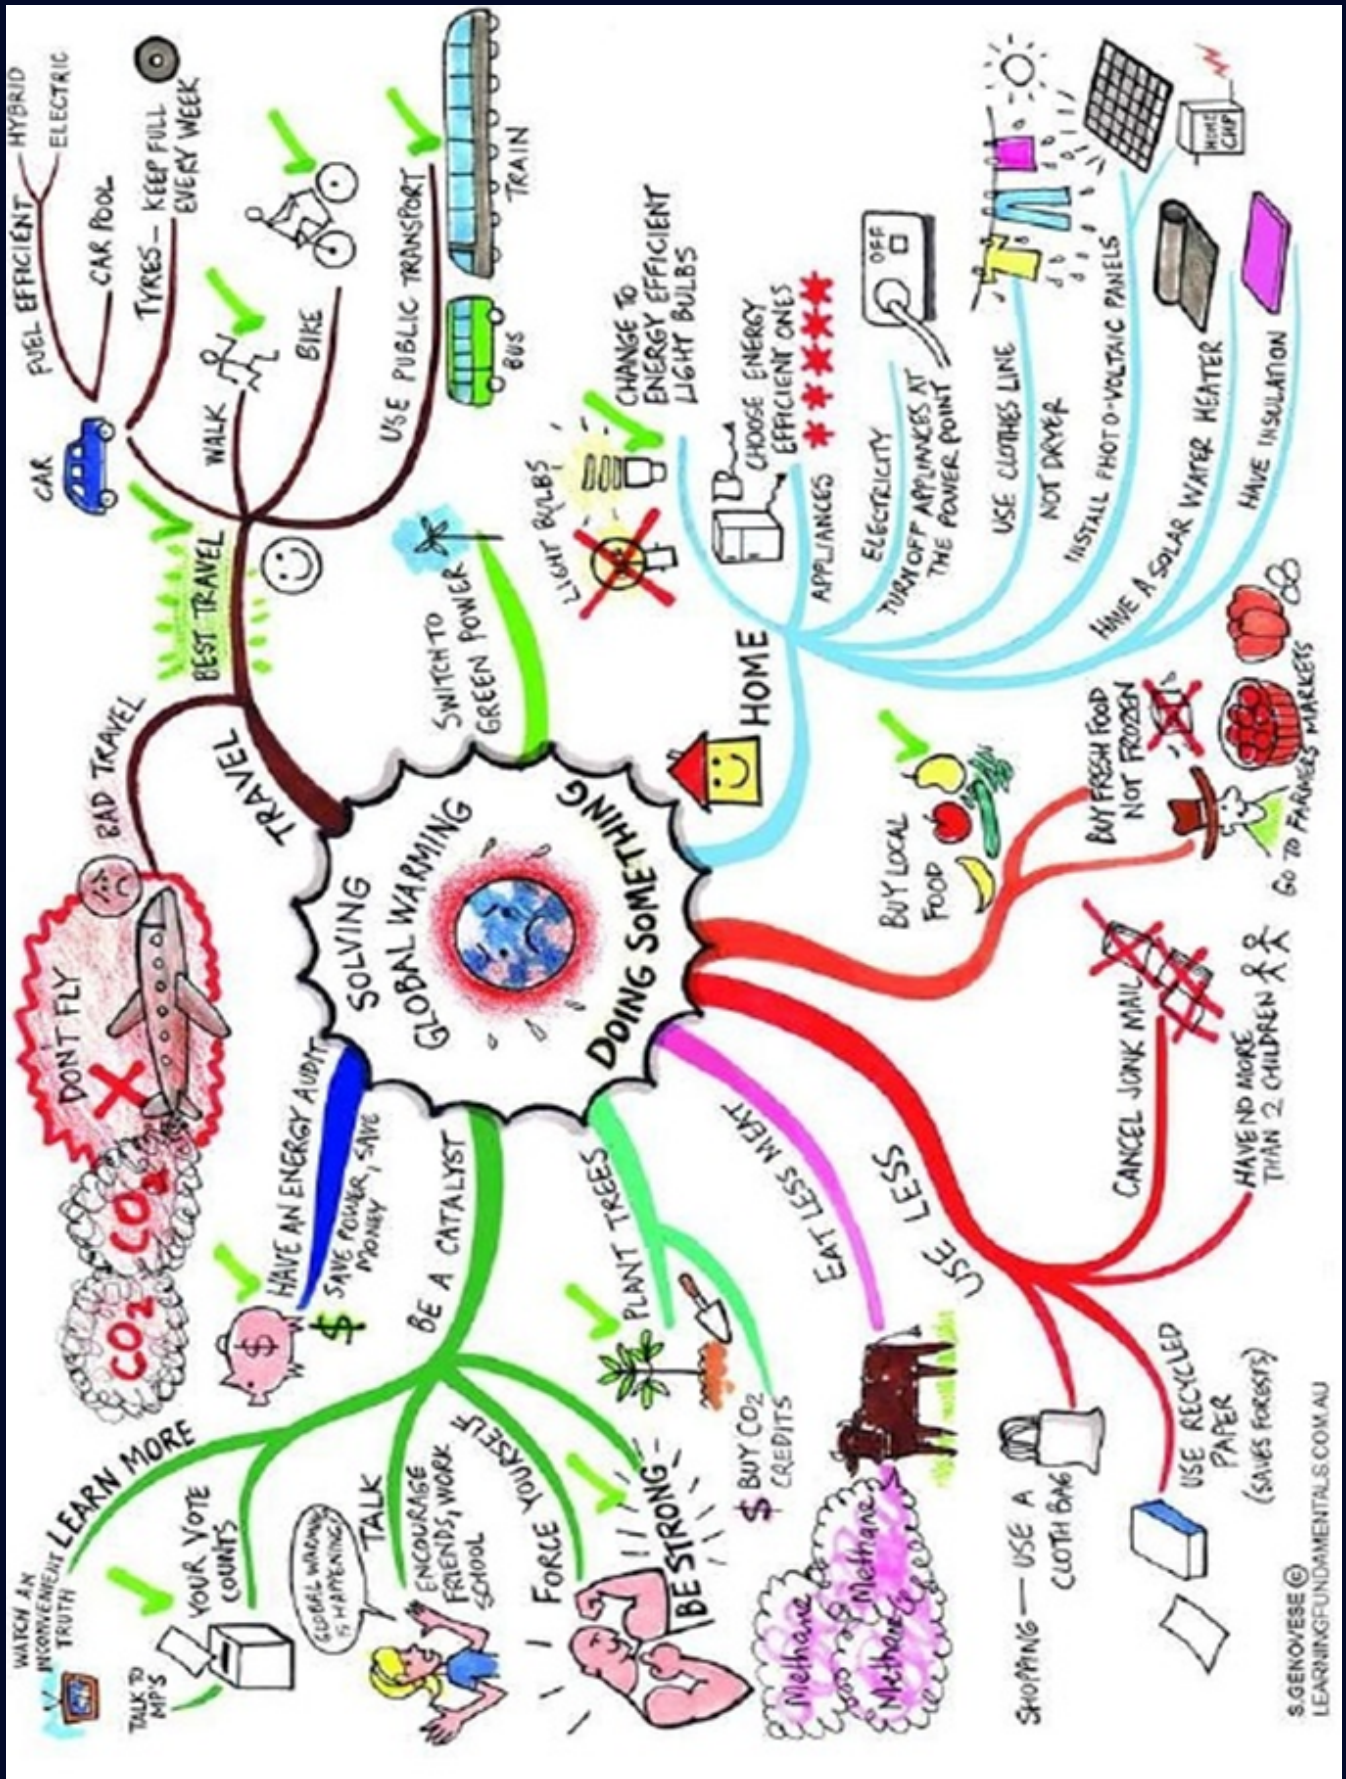 SOLVING
GLOBAL WARMING
DOING SOMETHING
TRAVEL
BAD TRAVEL
DON'T FLY
CO2
CO2
BEST TRAVEL
CAR
FUEL EFFICIENT
HYBRID
ELECTRIC
CAR POOL
TYRES - KEEP FULL
EVERY WEEK
WALK
BIKE
USE PUBLIC TRANSPORT
BUS
TRAIN
SWITCH TO
GREEN POWER
HOME
LIGHT BULBS
CHANGE TO
ENERGY EFFICIENT
LIGHT BULBS
APPLIANCES
CHOOSE ENERGY
EFFICIENT ONES
ELECTRICITY
TURN OFF APPLIANCES AT
THE POWER POINT
OFF
USE CLOTHES LINE
NOT DRYER
INSTALL PHOTO-VOLTAIC PANELS
HOME
CHP
HAVE A SOLAR WATER HEATER
HAVE INSULATION
BUY LOCAL
FOOD
BUY FRESH FOOD
NOT FROZEN
GO TO FARMERS MARKETS
USE LESS
CANCEL JUNK MAIL
HAVE NO MORE
THAN 2 CHILDREN
USE RECYCLED
PAPER
(SAVES FORESTS)
SHOPPING - USE A
CLOTH BAG
EAT LESS MEAT
Methane
Methane
Methane
PLANT TREES
$ BUY CO2
CREDITS
BE A CATALYST
BE STRONG
FORCE YOURSELF
TALK
ENCOURAGE
FRIENDS, WORK
SCHOOL
GLOBAL WARMING
IS HAPPENING!
YOUR VOTE
COUNTS
TALK TO
MP'S
LEARN MORE
WATCH AN
INCONVENIENT
TRUTH
HAVE AN ENERGY AUDIT
$ SAVE POWER, SAVE
MONEY
$
S.GENOVESE ©
LEARNINGFUNDAMENTALS.COM.AU